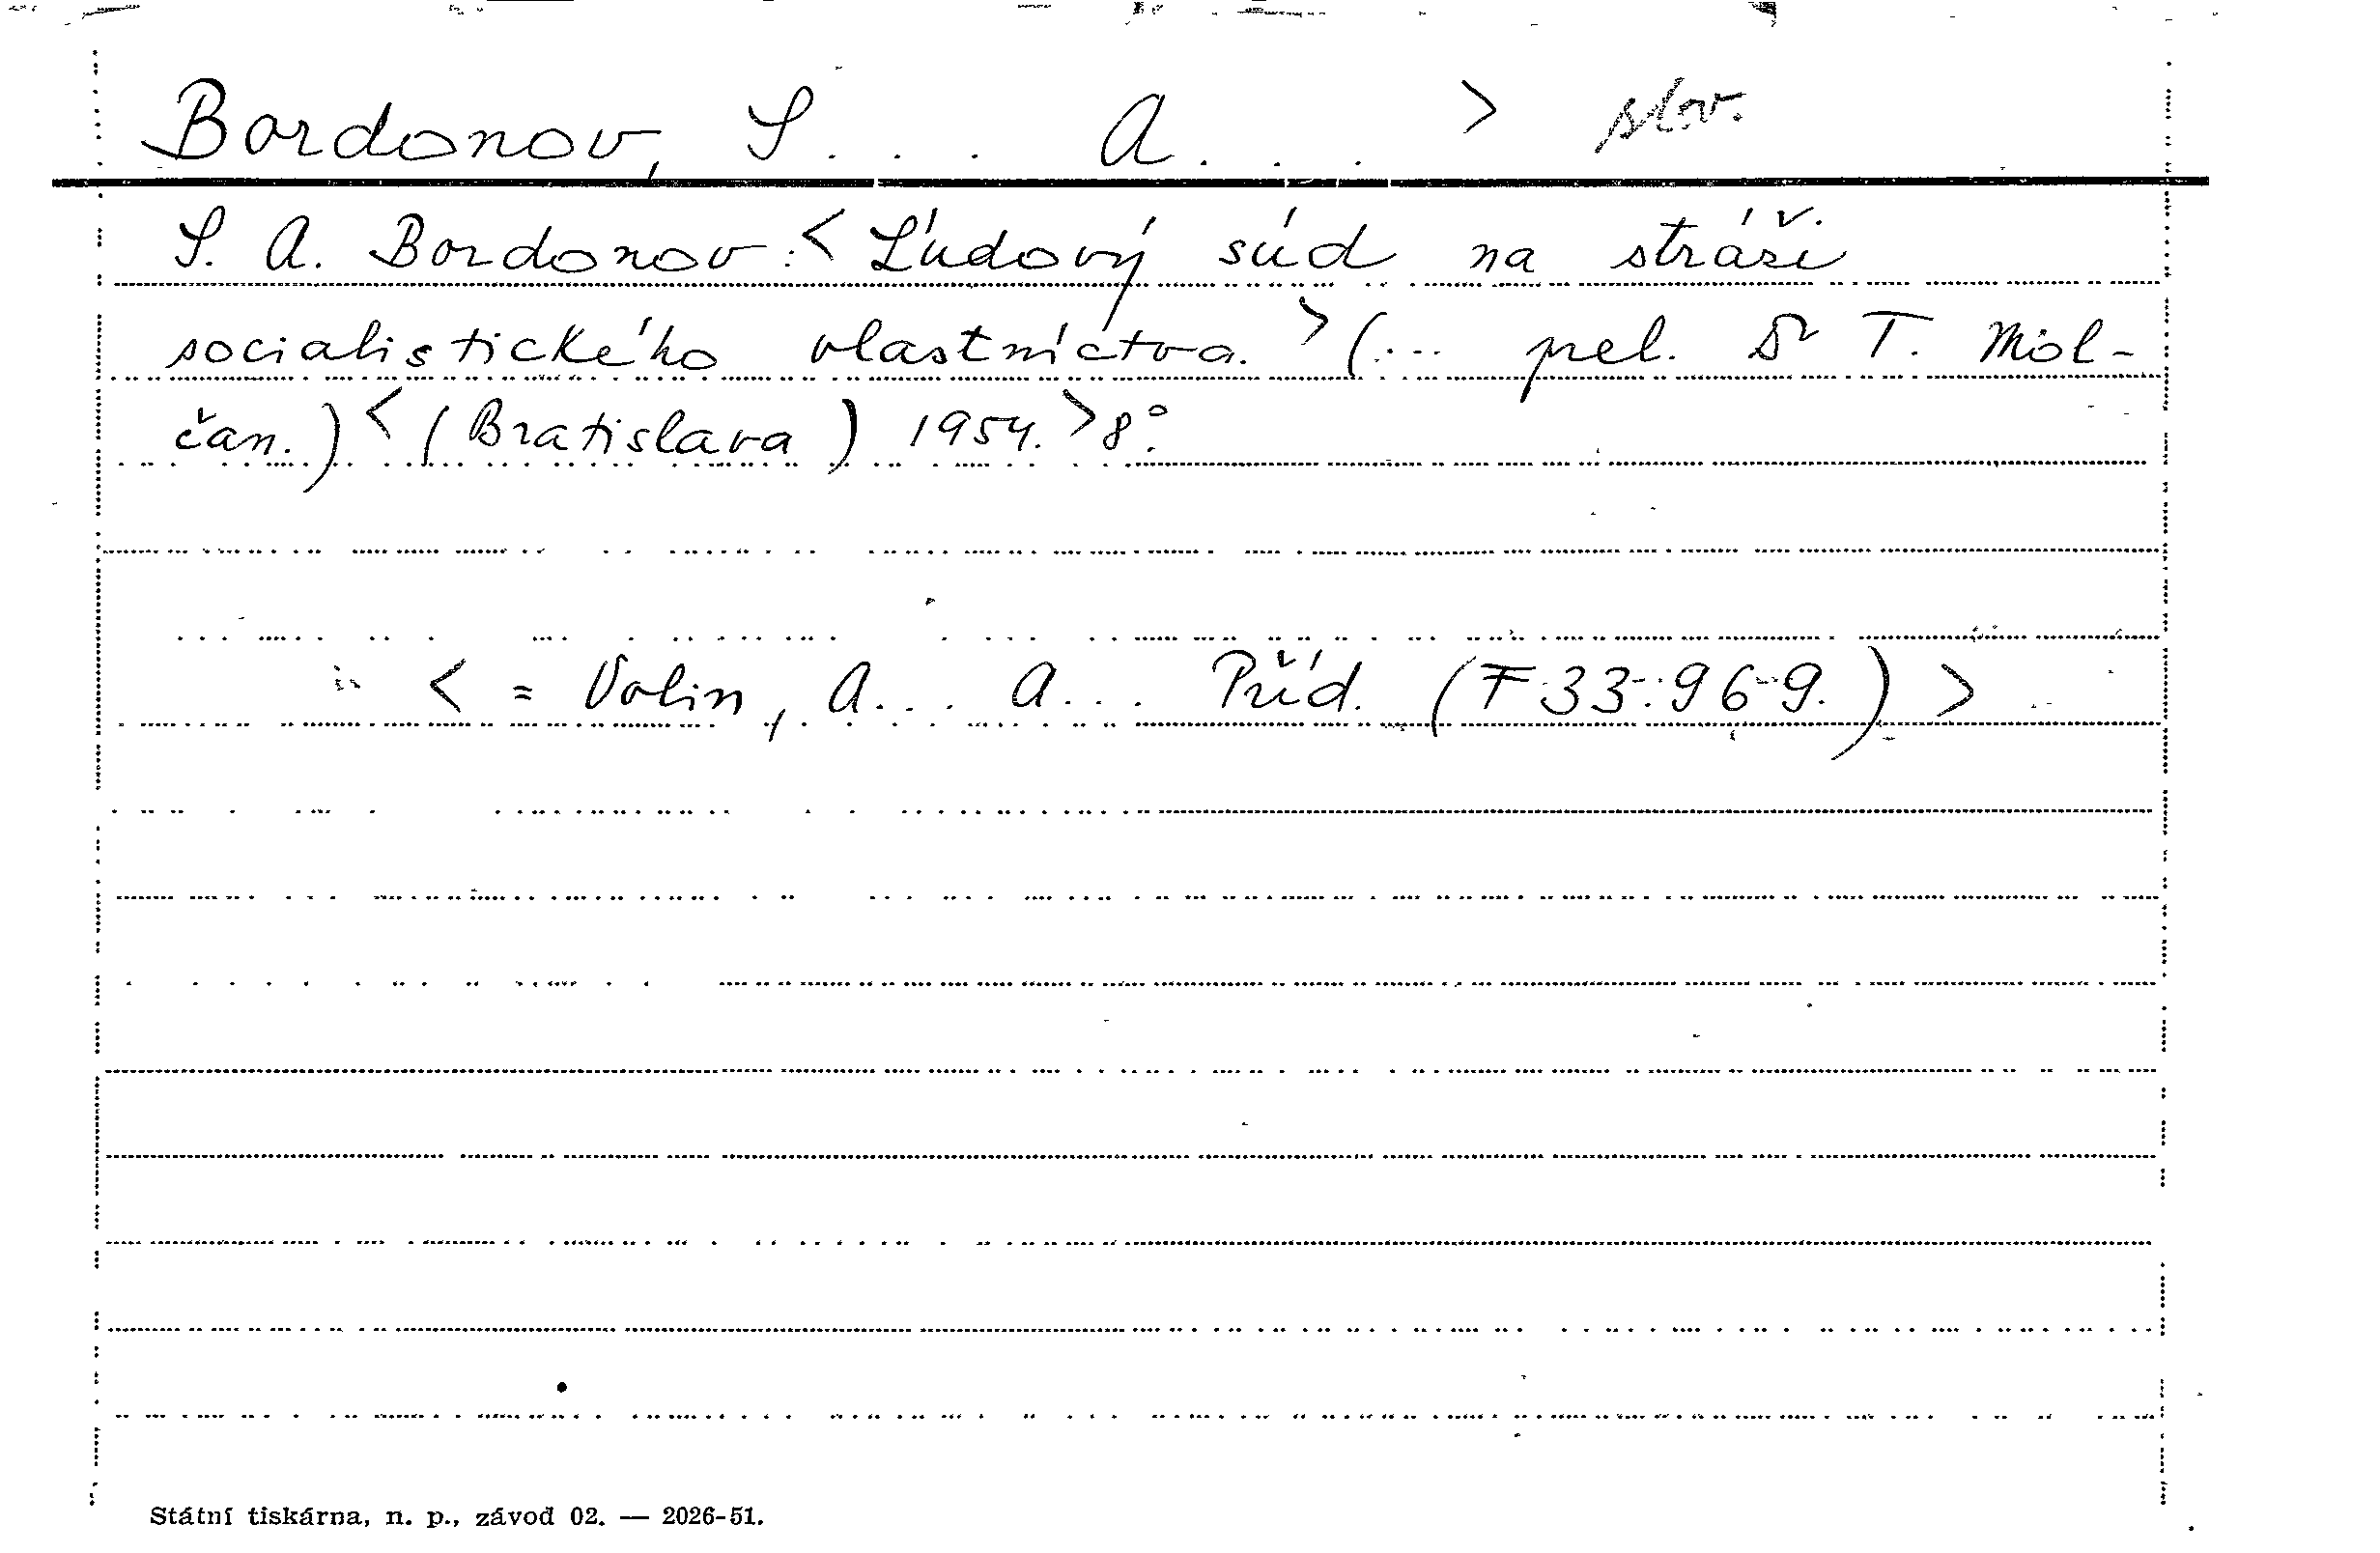 Bordonov, S... A... > slov.
S. A. Bordonov: < Ľudový súd na stráži
socialistického vlastníctva. > (... prel. Dr T. Mol-
čan.) < (Bratislava) 1954. > 8°.
< = Volin, A... A... Příd. (F 33969.) >
Státní tiskárna, n. p., závod 02. — 2026-51.